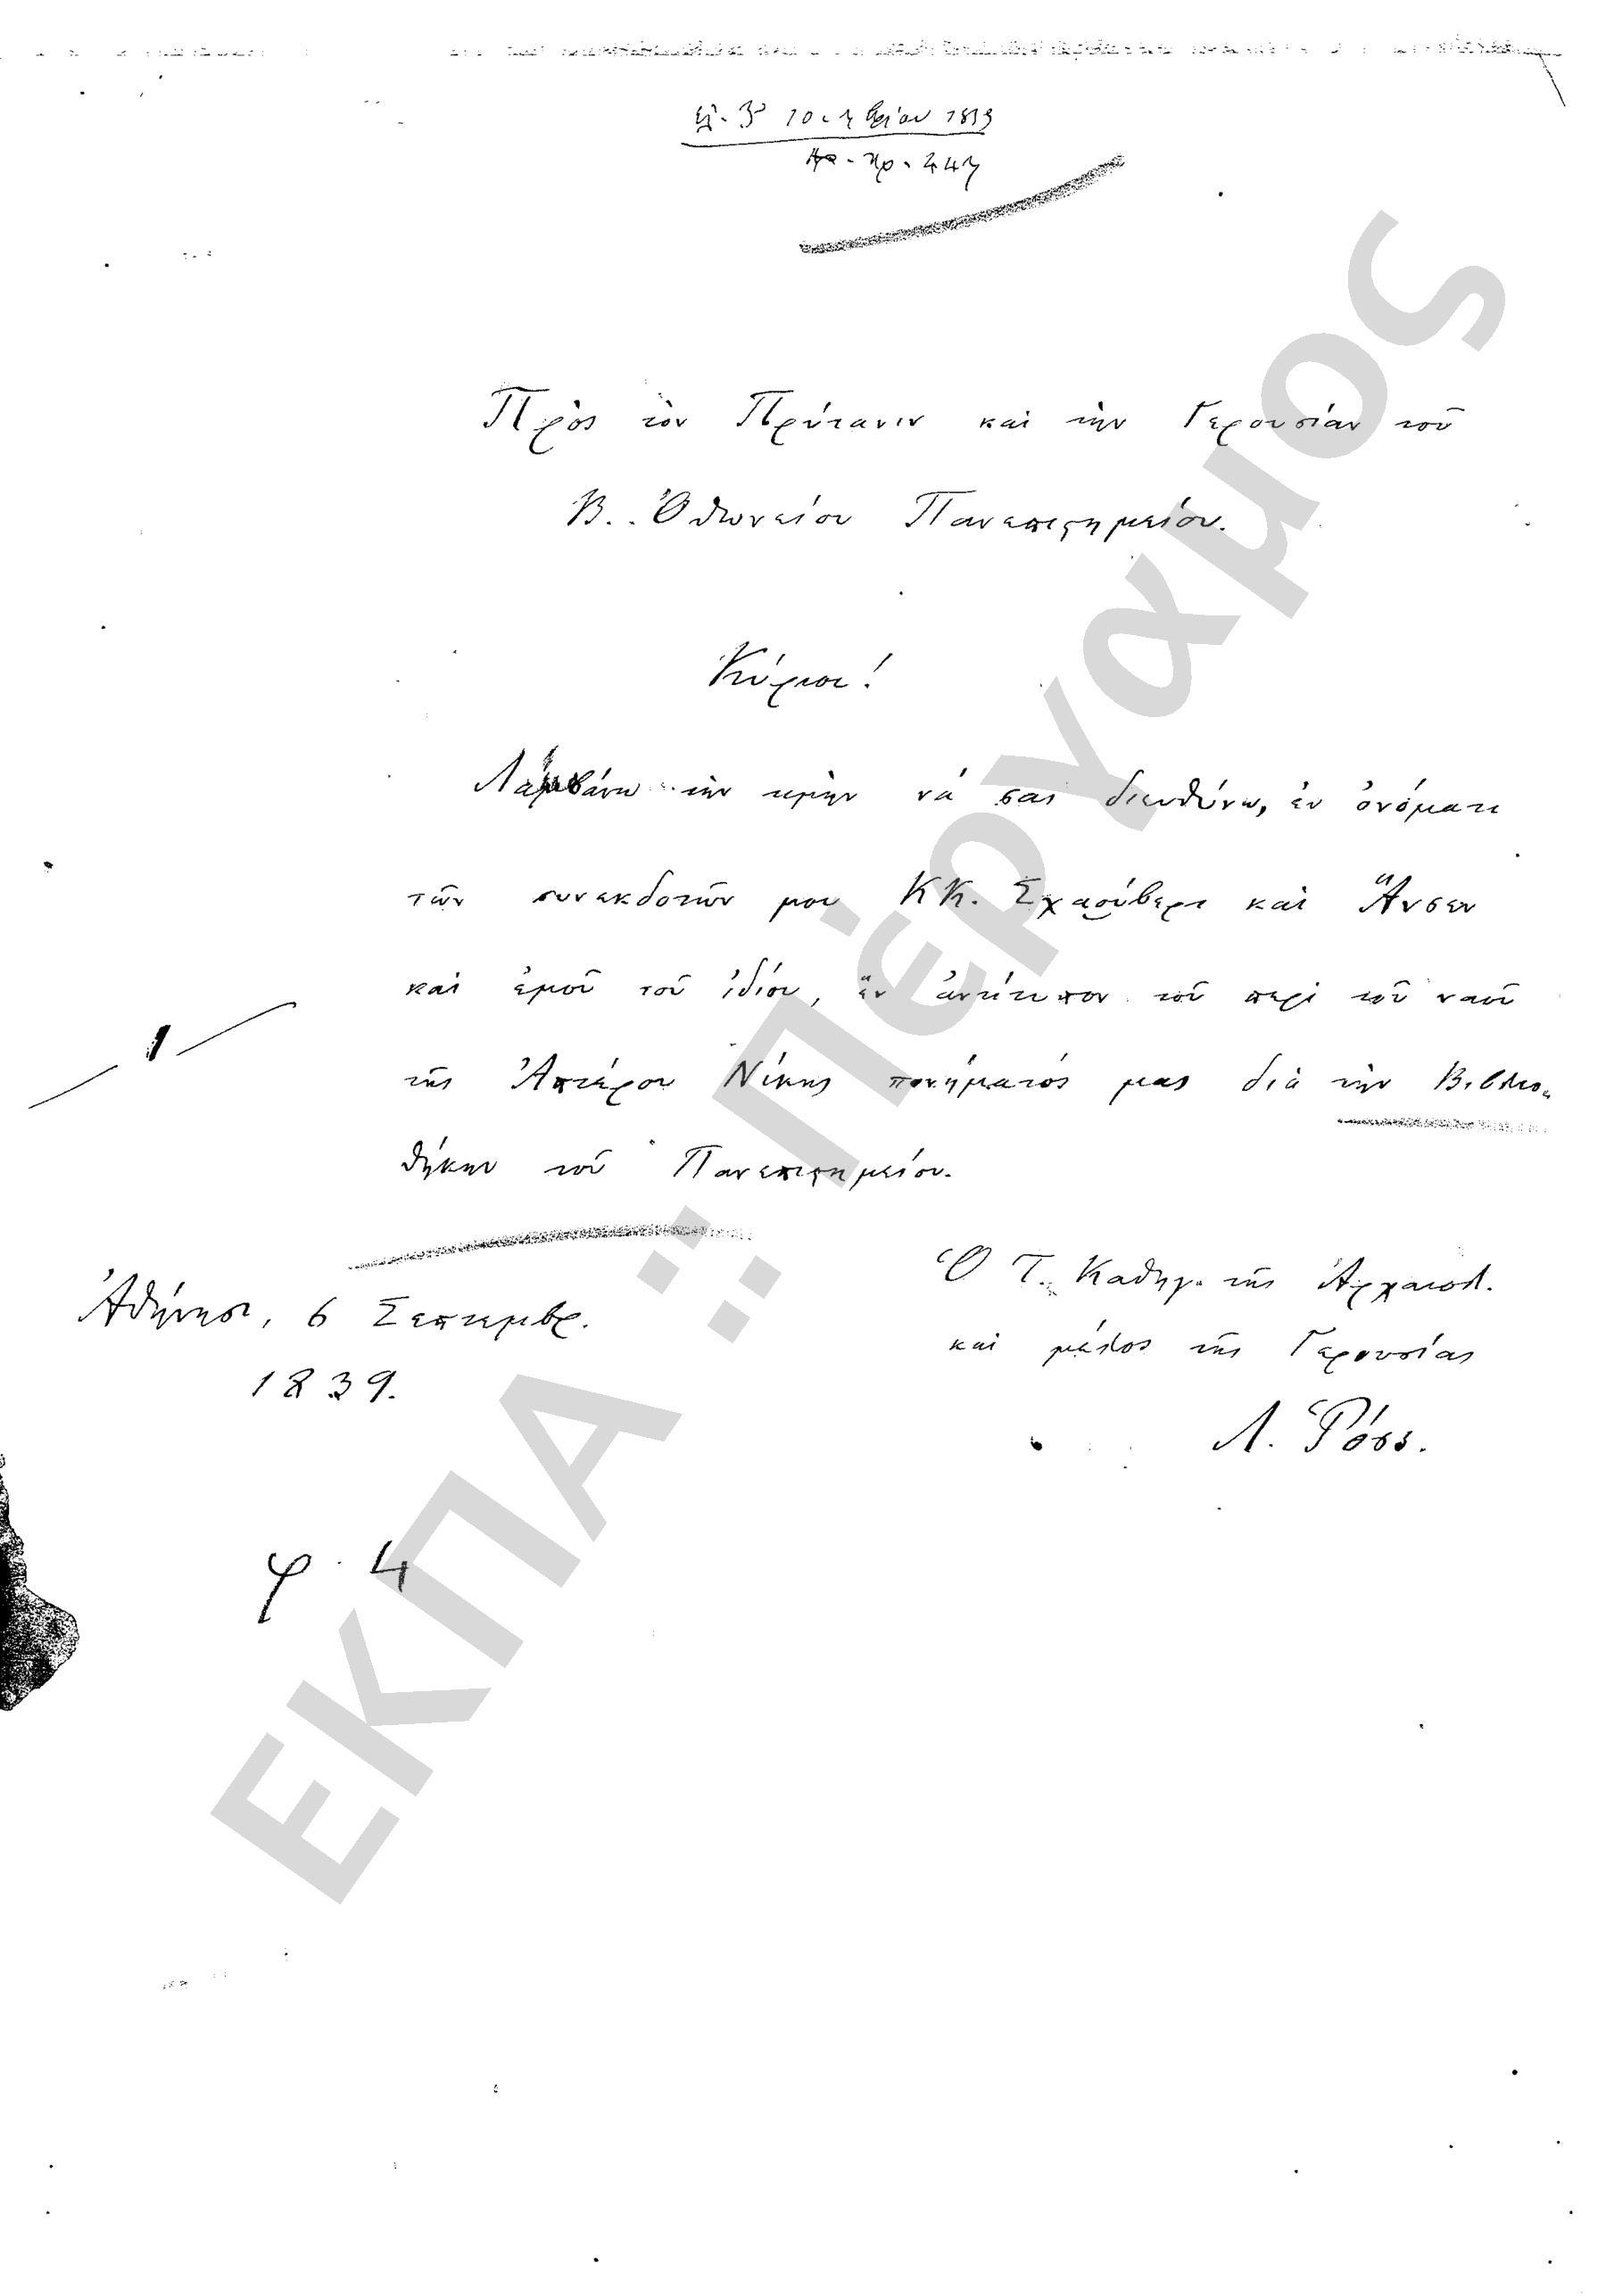 10 7βρίου 1839
Αρ. πρ. 247
Πρὸς τὸν Πρύτανιν καὶ τὴν Γερουσίαν τοῦ
Β. Ὀθωνείου Πανεπιςημείου.
Κύριοι!
Λαμβάνω τὴν τιμὴν νά σας διευθύνω, ἐν ὀνόματι
τῶν συνεκδοτῶν μου ΚΚ. Σχαούβερτ καὶ Ἄνσεν
καὶ ἐμοῦ τοῦ ἰδίου, ἓν ἀντίτυπον τοῦ περὶ τοῦ ναοῦ
τῆς Ἀπτέρου Νίκης πονήματός μας διὰ τὴν Βιβλιο-
θήκην τοῦ Πανεπιςημείου.
Ἀθήνησι, 6 Σεπτεμβρ.
1839.
Ὁ Τ. Καθηγ. τῆς Ἀρχαιολ.
καὶ μέλος τῆς Γερουσίας
Λ. Ῥόσς.
φ. 4
ΕΚΠΑ :: Πέργαμος